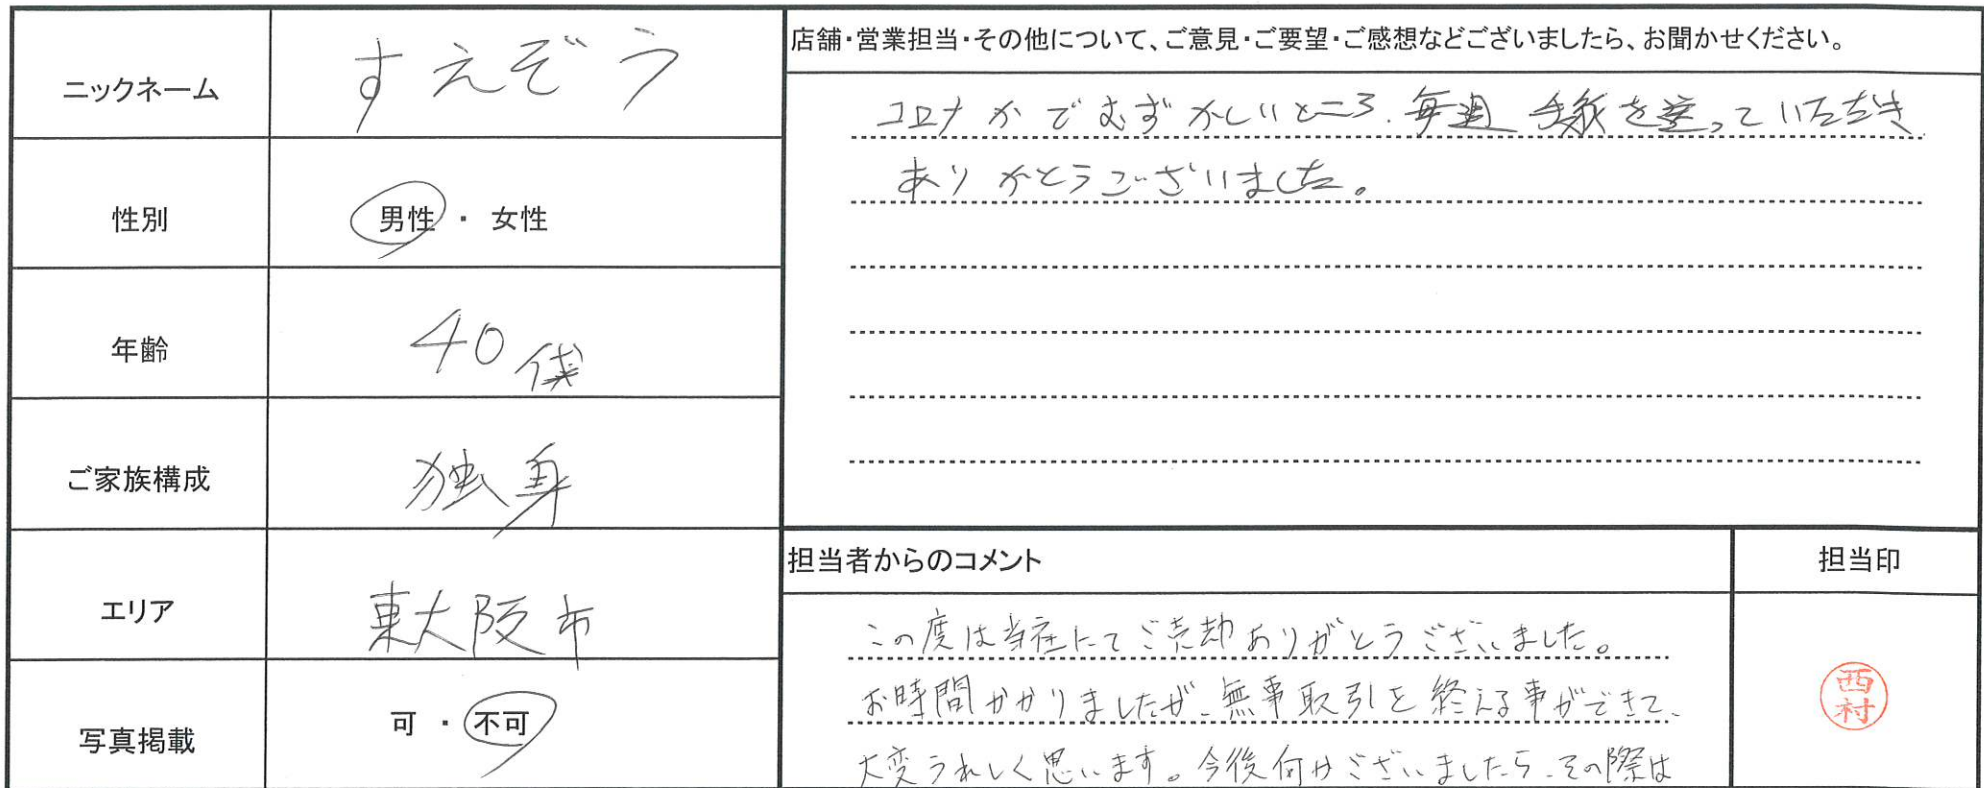 ニックネーム
すえぞう
性別
男性 ・ 女性
年齢
40代
ご家族構成
独身
エリア
東大阪市
写真掲載
可 ・ 不可
店舗・営業担当・その他について、ご意見・ご要望・ご感想などございましたら、お聞かせください。
コロナかでむずかしいところ、毎週 手紙を送っていただき
ありがとうございました。
担当者からのコメント
この度は当社にてご売却ありがとうございました。
お時間かかりましたが、無事取引を終える事ができて、
大変うれしく思います。今後何かございましたら、その際は
担当印
西村